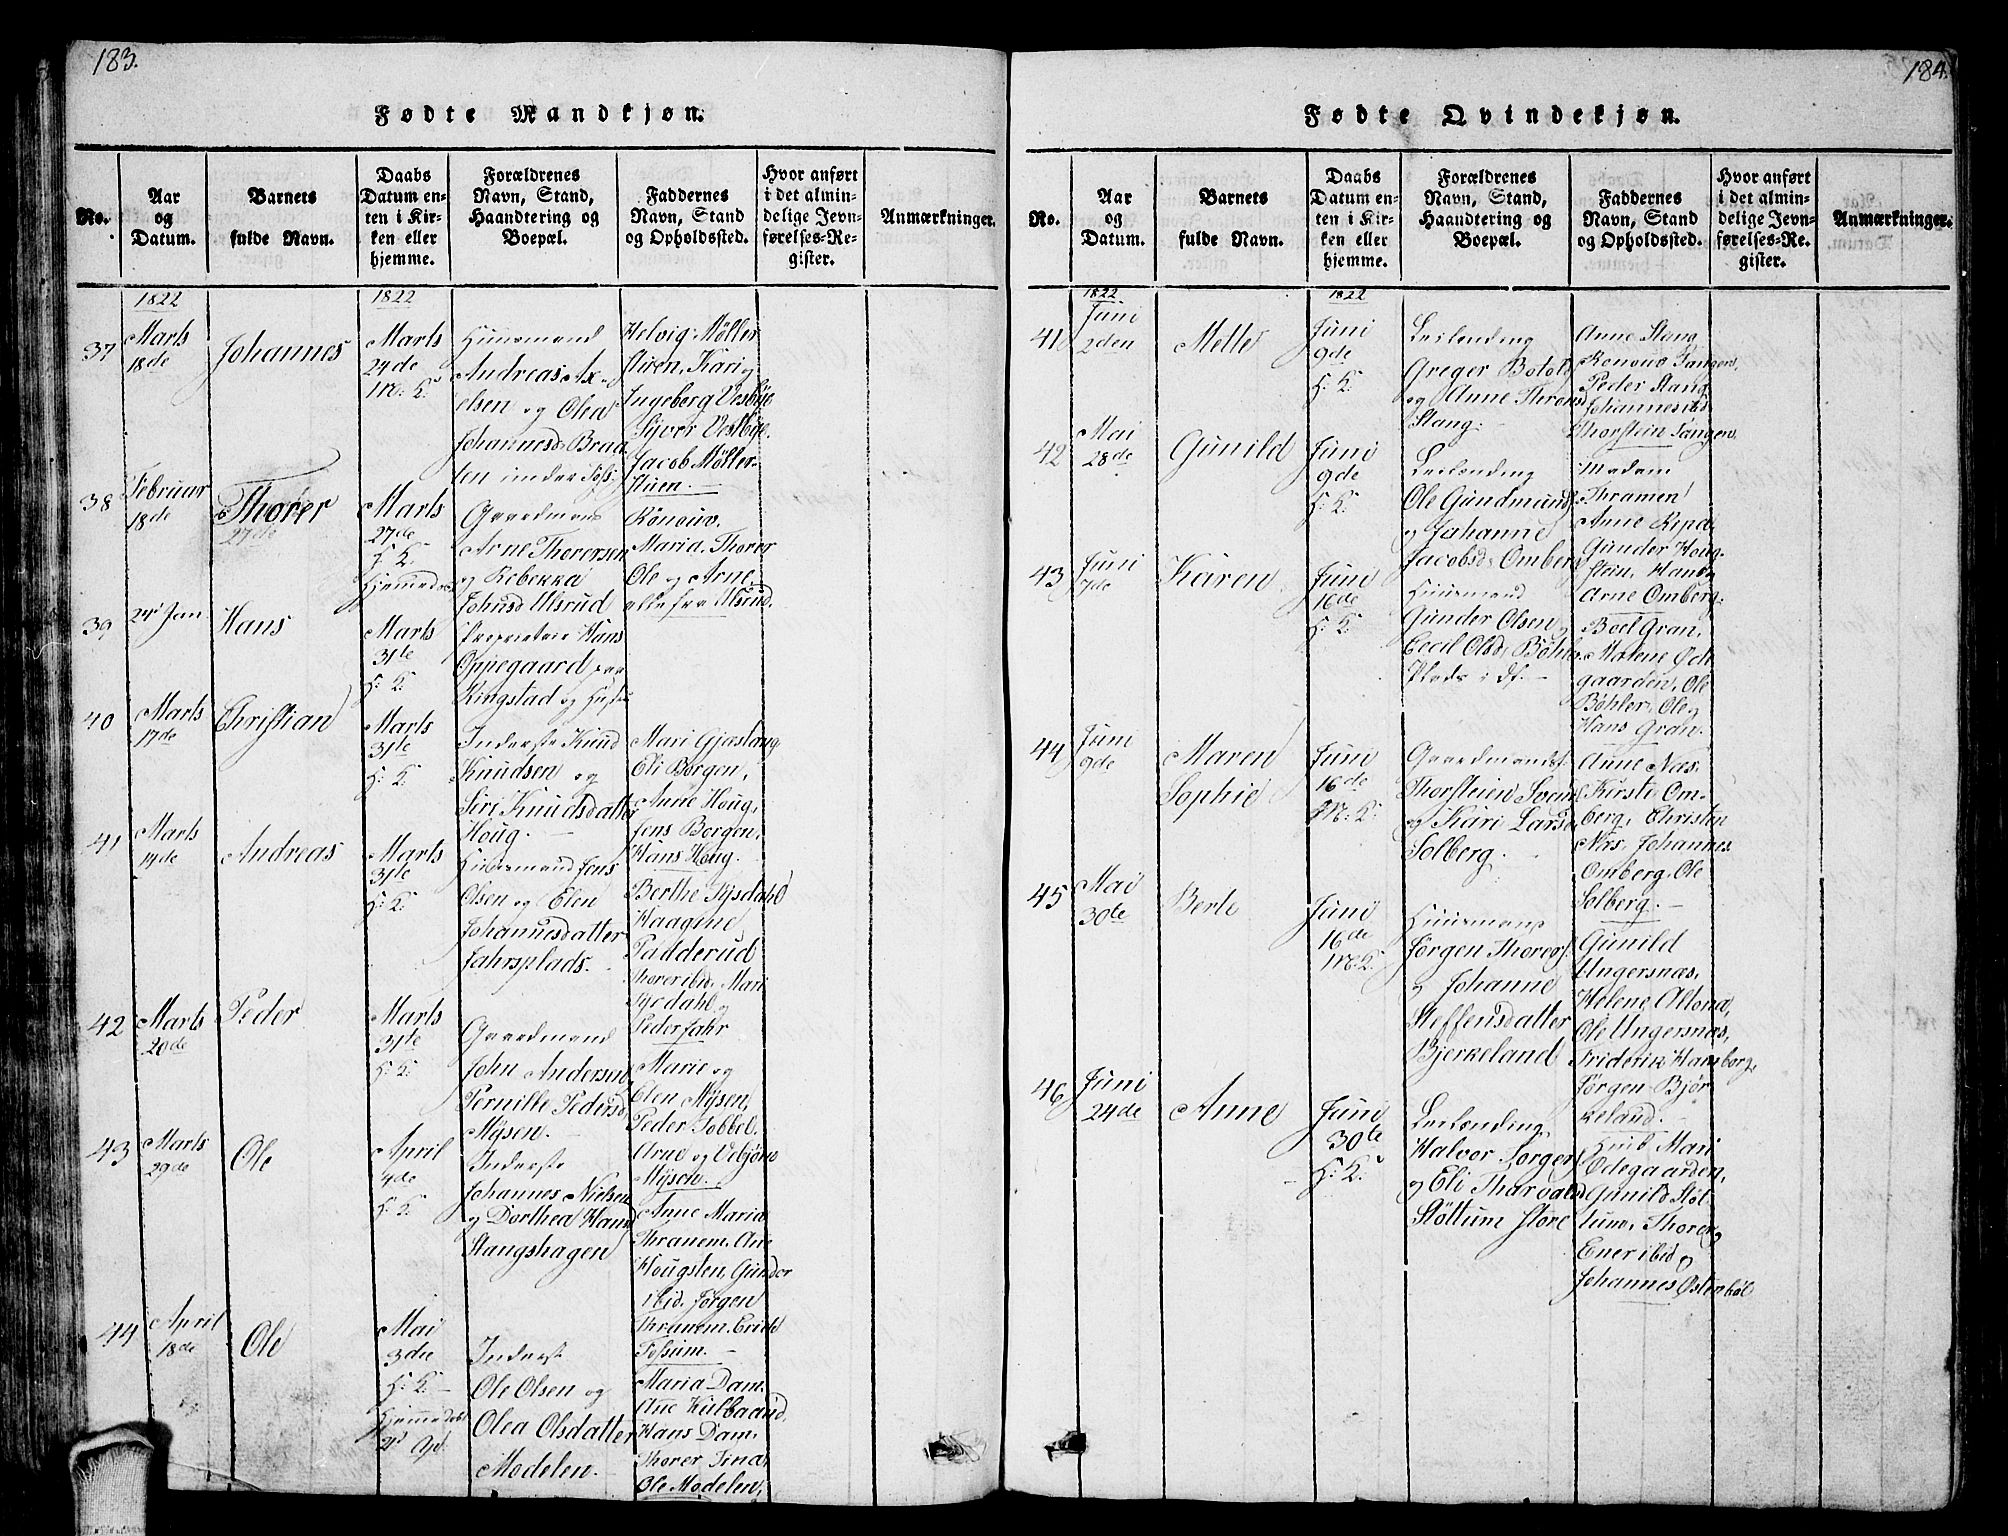 183.
Fødte Mandkjøn.
No.
Aar og Datum.
Barnets fulde Navn.
Daabs Datum enten i Kirken eller hjemme.
Forældrenes Navn, Stand, Haandtering og Boepæl.
Faddernes Navn, Stand og Opholdssted.
Hvor anført i det almindelige Jevnførelses-Register.
Anmærkninger.
1822
1822
37
Marts
18de
Johannes
Marts
24de
M: K:
Huusmand
Andreas Ax-
elsen og Olea
Johannesd: Braa
ten under
Helvig Møller
stuen, Kari og
Ingeborg Vestbye
Syver Vestbye.
Jacob Møller-
stuen.
38
Februar
18de
Thorer
27de
Marts
27de
H: K:
Hjemmedøbt
Gaardmand
Arne Thorersen
og Rebekka
Johnsd: Ulsrud
Rønouv,
Maria, Thorer
Ole og Arne
alle fra Ulsrud.
39
24 Jan
Hans
Marts
31te
H: K:
Proprietair Hans
Oppegaard paa
Ringstad og Hustru
40
Marts
17de
Christian
Marts
31te
H: K:
Inderste Knud
Knudsen og
Siri Knudsdatter
Houg.
Mari Gjæslang
Eli Borgen,
Anne Houg,
Jens Borgen,
Hans Houg.
41
Marts
14de
Andreas
Marts
31te
H: K:
Huusmand Jens
Olsen og Elen
Johannesdatter
Jahrsplads.
Berthe Sysdahl
Haagine
Padderud
Thorer ibid, Mari
Sysdahl og
Peder Jahr
42
Marts
20de
Peder
Marts
31te
H: K:
Gaardmand
John Anders og
Pernille Pedersd
Mysen.
Marie og
Elen Mysen,
Peder Tobbel.
Arne og Vebjørn
Mysen.
43
Marts
29de
Ole
April
4de
H: K:
Inderste
Johannes Nielsen
og Dorthea Hansd
Stangshagen
Anne Maria
Thranem, Ane
Hougsten, Gunder
ibid. Jørgen
Thranem, Erich
Fossum.
44
April
18de
Ole
Mai
3die
H: K.
Hjemmedøbt
21 Apl.
Inderst
Ole Olsen og
Olea Olsdatter
Modelen.
Maria Dam.
Ane Kulbaand,
Hans Dam,
Thorer Tina,
Ole Modelen,
184.
Fødte Qvindekjøn.
No.
Aar og Datum.
Barnets fulde Navn.
Daabs Datum enten i Kirken eller hjemme.
Forældrenes Navn, Stand, Haandtering og Boepæl.
Faddernes Navn, Stand og Opholdssted.
Hvor anført i det almindelige Jevnførelses-Register.
Anmærkninger.
1822
1822
41
Juni
2den
Mette
Juni
9de
H: K:
Leilending
Greger Botolds
og Anne Throns
Stang.
Anne Stang
Rønouv Tangen,
Peder Stang
Johannes ibid
Thorstein Tangen
42
Mai
28de
Gunild
Juni
9de
H: K:
Leilending
Ole Gundmunds
og Johanne
Jacobsd: Omberg
Madam
Thramen
Anne Ripa
Gunder Houg-
stein, Hans
Arne Omberg.
43
Juni
7de
Karen
Juni
16de
H: K:
Huusmand
Gunder Olsen og
Cecil Olsd: Bøhler
Plads
Boel Gran,
Malene Øde
gaarden, Ole
Bøhler, Ole og
Hans Gran.
44
Juni
9de
Maren
Sophie
Juni
16de
M: K:
Gaardmand
Thorstein Svends
og Kari Larsd
Solberg.
Anne Næs.
Kirsti Om-
berg, Christen
Næs, Johannes
Omberg, Ole
Solberg.
45
Mai
30te
Berte
Juni
16de
M: K:
Huusmand
Jørgen Thores
og Johanne
Steffensdatter
Bjerkeland
Gunild
Ungersnæs,
Helene Altona,
Ole Ungersnæs,
Friderik Hamborg,
Jørgen Bjør
keland.
46
Juni
24de
Anne
Juni
30te
H: K:
Leilending
Halvor Jørgens
og Eli Tharvalds
Støttum store
Mari
Ødegaarden,
Gunild Støt
tum, Thorer og
Ener ibid og
Johannes Østenbøl